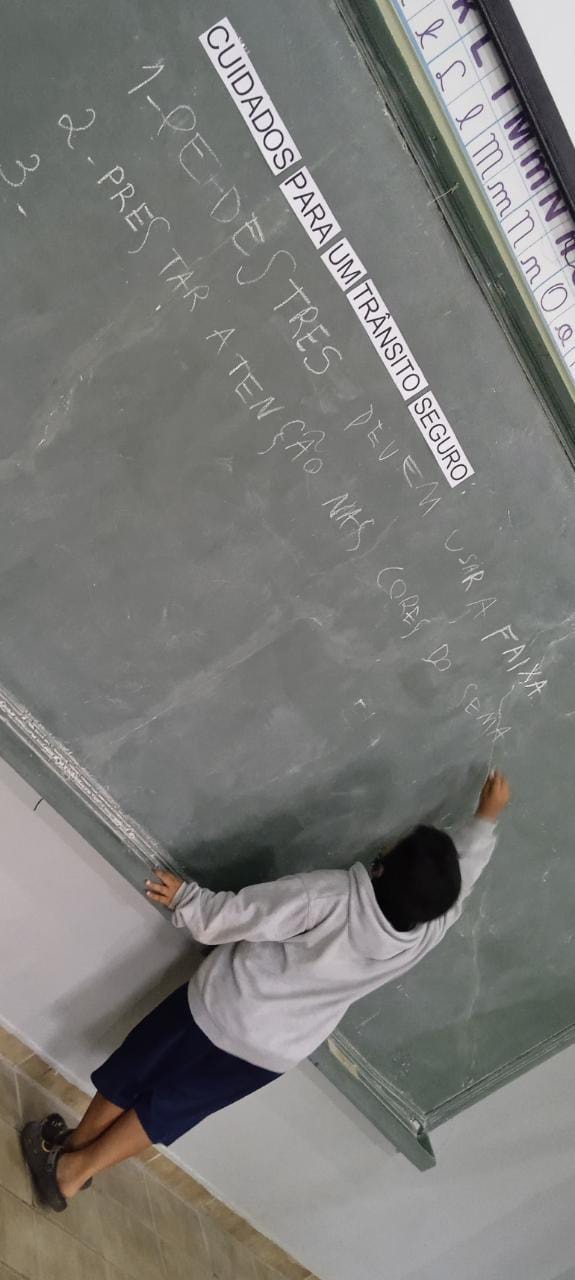 K L l M m N
k L l M m N n O o
CUIDADOS PARA UM TRÂNSITO SEGURO.
1-PEDESTRES DEVEM USAR A FAIXA
2. PRESTAR ATENÇÃO NAS CORES DO SEMA
3.